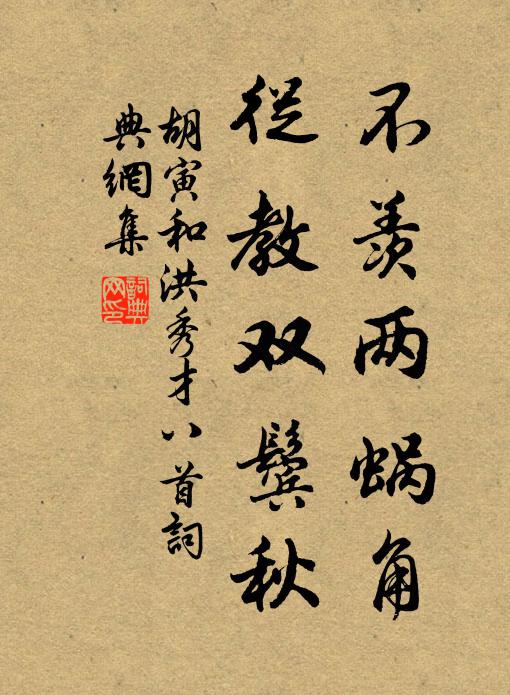 不羡两蜗角
從教双鬓秋
胡寅和洪秀才八首詞
典網集
詞典網印